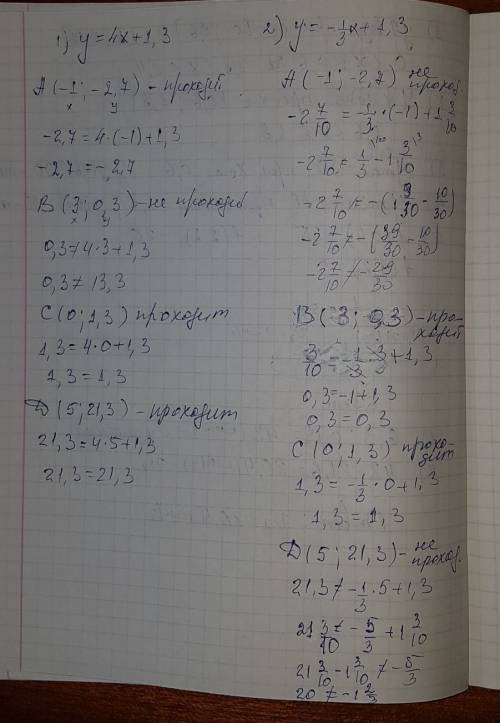 1) y=4x+1,3
A(-1; -2,7) - проходит
x y
-2,7=4·(-1)+1,3
-2,7=-2,7
B(3; 0,3) - не проходит
x y
0,3≠4·3+1,3
0,3≠13,3
C(0; 1,3) проходит
1,3=4·0+1,3
1,3=1,3
D(5; 21,3) - проходит
21,3=4·5+1,3
21,3=21,3
2) y=-1/3x+1,3
A(-1; -2,7) не проход.
-2 7/10 = -1/3·(-1)+1 3/10
-2 7/10 ≠ 1/3 - 1 3/10
-2 7/10 ≠ -(1 9/30 - 10/30)
-2 7/10 ≠ -(39/30 - 10/30)
-2 7/10 ≠ -29/30
B(3; 0,3) - проходит
3/10 = -1·3/3+1,3
0,3=-1+1,3
0,3=0,3
C(0; 1,3) проходит
1,3=-1/3·0+1,3
1,3=1,3
D(5; 21,3) - не проход.
21,3≠-1/3·5+1,3
21 3/10 ≠ -5/3+1 3/10
21 3/10 - 1 3/10 ≠ -5/3
20≠-1 2/3